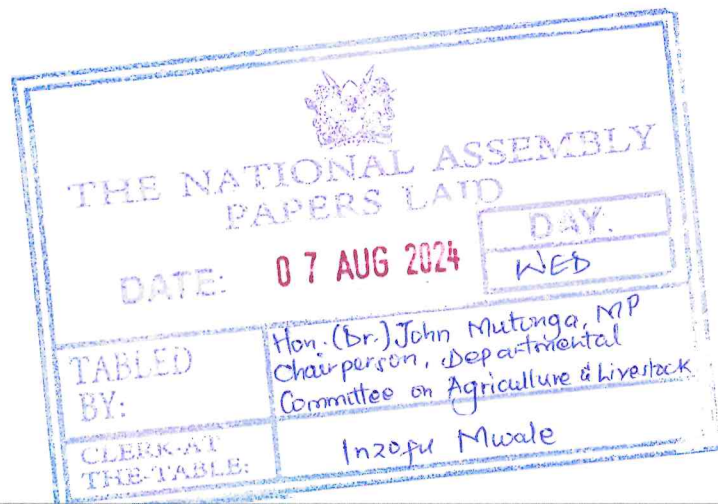 THE NATIONAL ASSEMBLY
PAPERS LAID
DATE: 07 AUG 2024
DAY.
WED
TABLED BY:
Hon. (Dr.) John Mutunga, MP
Chairperson, Departmental
Committee on Agriculture & Livestock
CLERK-AT THE-TABLE:
Inzofu Mwale